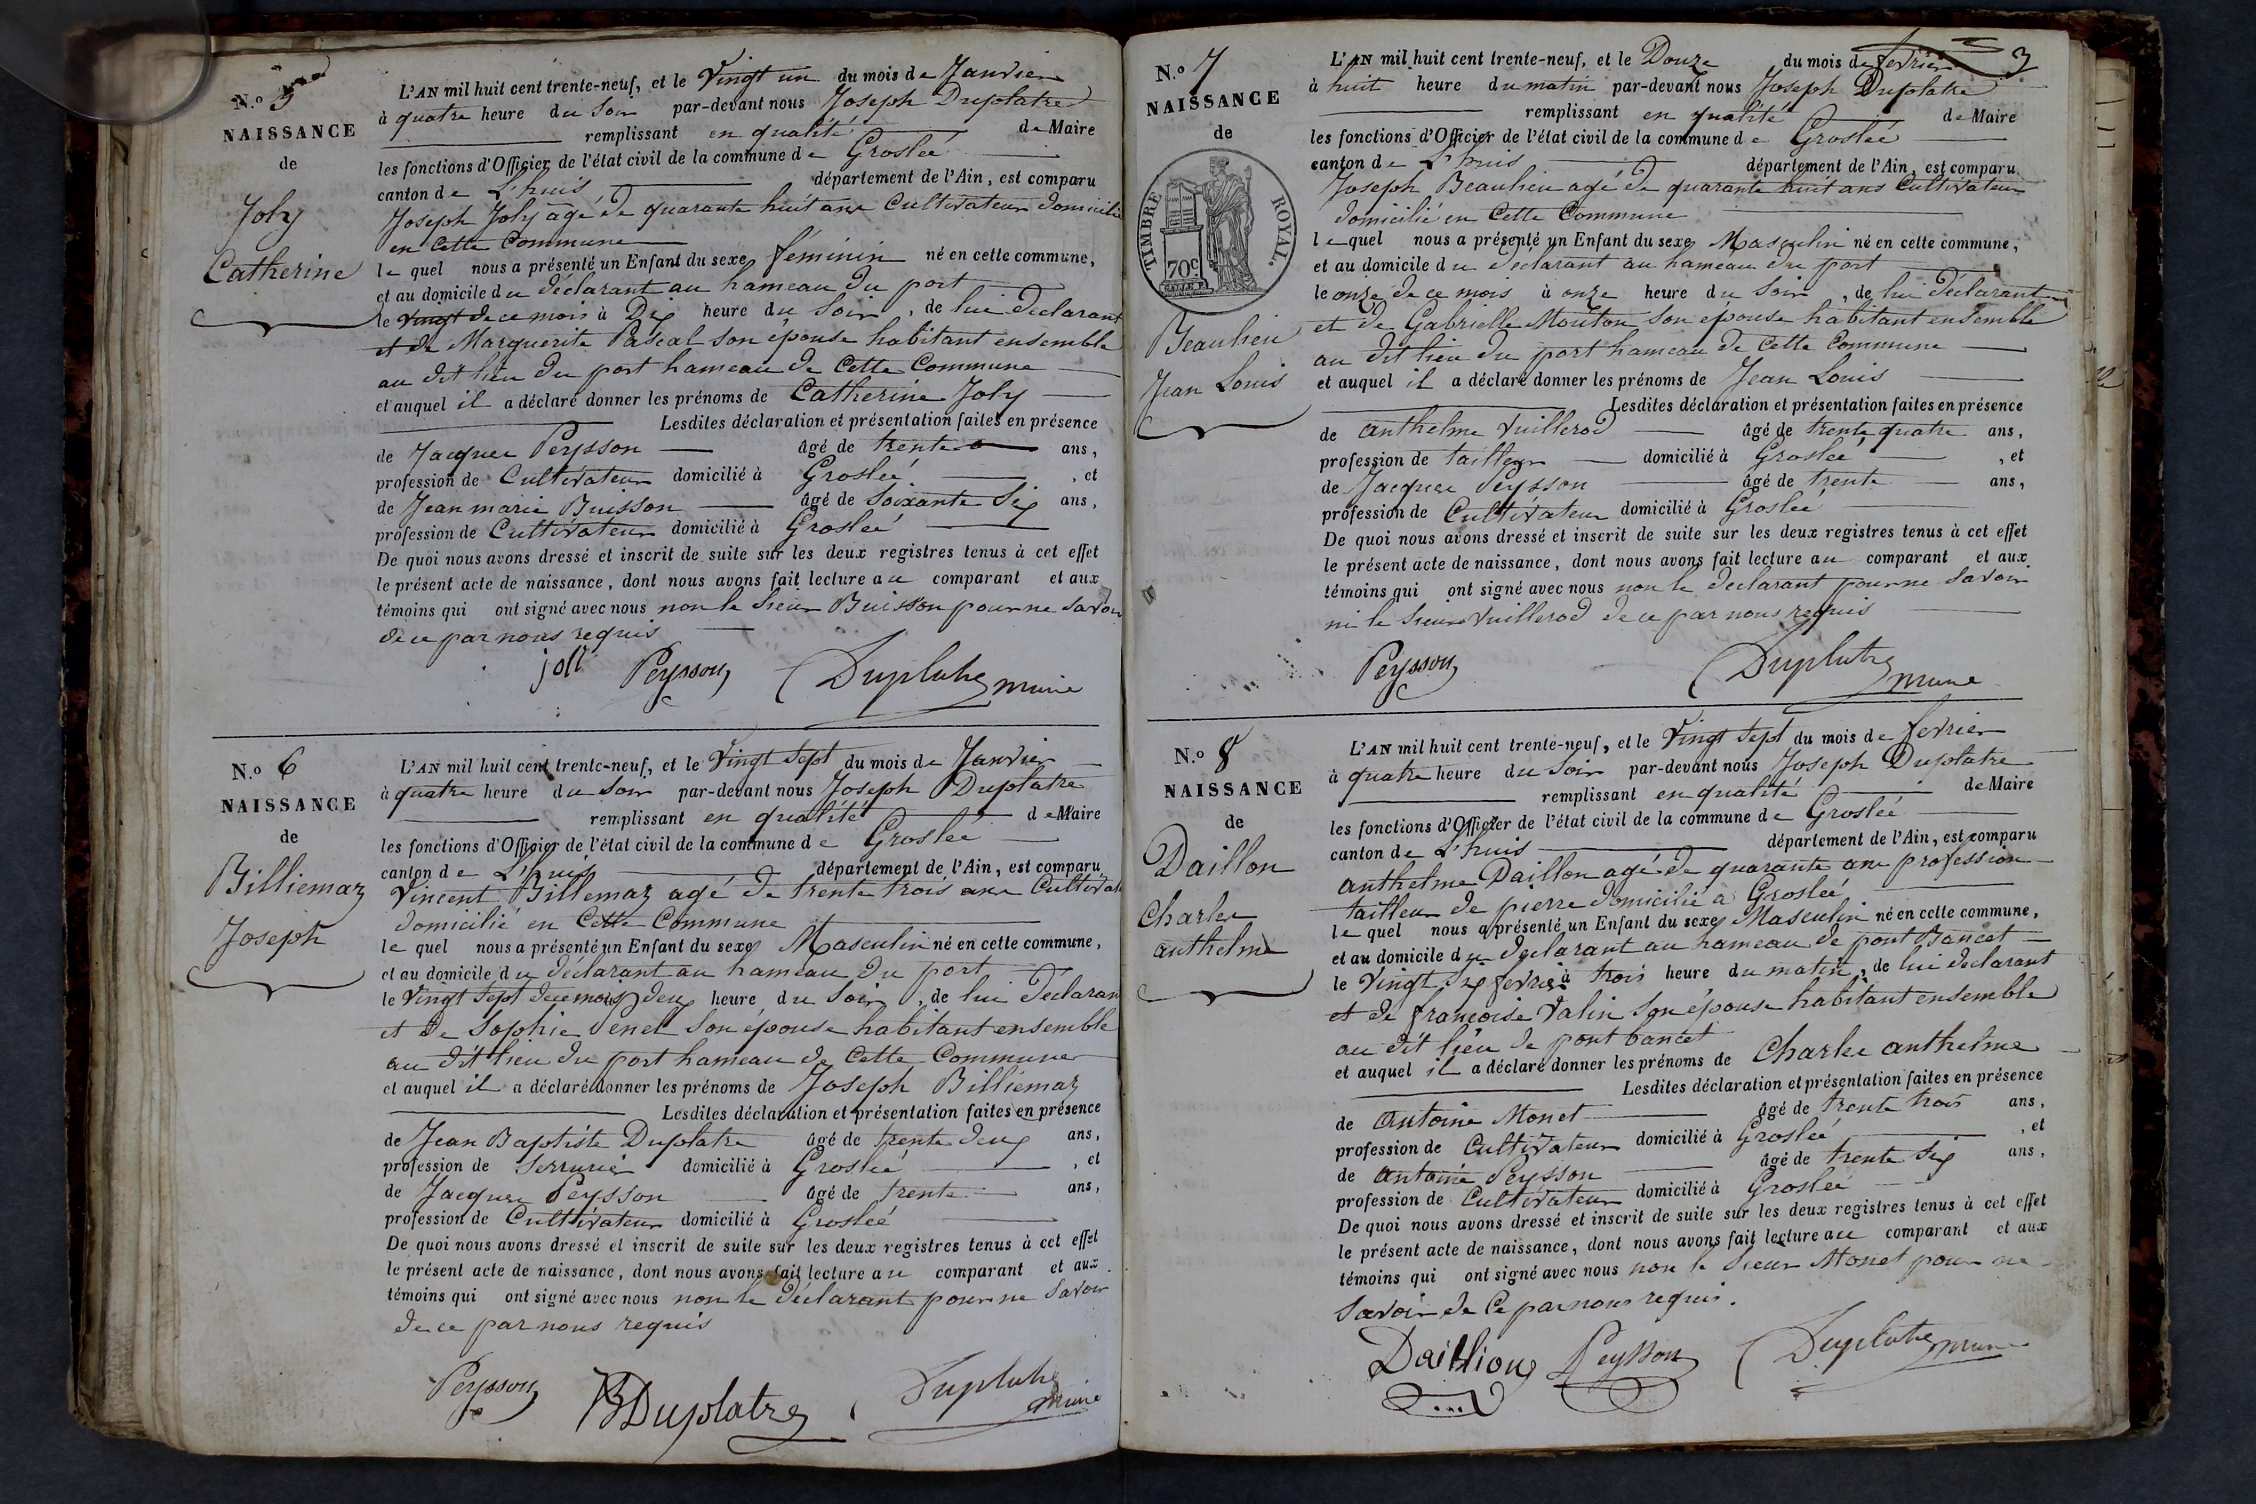 N.º 5
NAISSANCE
de
Joly
Catherine
L'AN mil huit cent trente-neuf, et le Vingt un du mois de Janvier
à quatre heure du Soir par-devant nous Joseph Duplatre
remplissant en qualité de Maire
les fonctions d'Officier de l'état civil de la commune de Groslée
canton de L'huis département de l'Ain, est comparu
Joseph Joly agé de quarante huit ans Cultivateur domicilié
en Cette Commune
le quel nous a présenté un Enfant du sexe féminin né en cette commune,
et au domicile du déclarant au hameau du port
le vingt de ce mois à Dix heure du Soir, de lui declarant
et de Marguerite Pascal son épouse habitant ensemble
au dit lieu du port hameau de Cette Commune
et auquel il a déclaré donner les prénoms de Catherine Joly
Lesdites déclaration et présentation faites en présence
de Jacques Peysson âgé de trente ans,
profession de Cultivateur domicilié à Groslée, et
de Jean marie Buisson âgé de Soixante Six ans,
profession de Cultivateur domicilié à Groslée
De quoi nous avons dressé et inscrit de suite sur les deux registres tenus à cet effet
le présent acte de naissance, dont nous avons fait lecture au comparant et aux
témoins qui ont signé avec nous non le Sieur Buisson pour ne Savoir
de ce par nous requis
joli Peysson Duplatre maire
N.º 6
NAISSANCE
de
Billiemaz
Joseph
L'AN mil huit cent trente-neuf, et le Vingt Sept du mois de Janvier
à quatre heure du Soir par-devant nous Joseph Duplatre
remplissant en qualité de Maire
les fonctions d'Officier de l'état civil de la commune de Groslée
canton de L'huis département de l'Ain, est comparu
Vincent Billemaz agé de trente trois ans Cultivat
domicilié en Cette Commune
le quel nous a présenté un Enfant du sexe Masculin né en cette commune,
et au domicile du déclarant au hameau du port
le Vingt Sept de ce mois à deux heure du Soir, de lui declaran
et de Sophie Penet Son épouse habitant ensemble
au dit lieu du port hameau de Cette Commune
et auquel il a déclaré donner les prénoms de Joseph Billiemaz
Lesdites déclaration et présentation faites en présence
de Jean Baptiste Duplatre âgé de trente deux ans,
profession de Serrurier domicilié à Groslée, et
de Jacques Peysson âgé de trente ans,
profession de Cultivateur domicilié à Groslée
De quoi nous avons dressé et inscrit de suite sur les deux registres tenus à cet effet
le présent acte de naissance, dont nous avons fait lecture au comparant et aux
témoins qui ont signé avec nous non le déclarant pour ne Savoir
de ce par nous requis
Peysson JBDuplatre Duplatre maire
3
N.º 7
NAISSANCE
de
TIMBRE ROYAL.
70c
Beaulieu
Jean Louis
L'AN mil huit cent trente-neuf, et le Douze du mois de fevrier
à huit heure du matin par-devant nous Joseph Duplatre
remplissant en qualité de Maire
les fonctions d'Officier de l'état civil de la commune de Groslée
canton de L'huis département de l'Ain, est comparu
Joseph Beaulieu agé de quarante huit ans Cultivateur
domicilié en Cette Commune
le quel nous a présenté un Enfant du sexe Masculin né en cette commune,
et au domicile du déclarant au hameau du port
le onze de ce mois à onze heure du Soir, de lui déclarant
et de Gabrielle Mouton Son épouse habitant ensemble
au dit lieu du port hameau de Cette Commune
et auquel il a déclaré donner les prénoms de Jean Louis
Lesdites déclaration et présentation faites en présence
de anthelme Vuillerod âgé de trente quatre ans,
profession de tailleur domicilié à Groslée, et
de Jacques Peysson âgé de trente ans,
profession de Cultivateur domicilié à Groslée
De quoi nous avons dressé et inscrit de suite sur les deux registres tenus à cet effet
le présent acte de naissance, dont nous avons fait lecture au comparant et aux
témoins qui ont signé avec nous non le declarant pour ne Savoir
ni le Sieur Vuillerod de ce par nous requis
Peysson Duplatre maire
N.º 8
NAISSANCE
de
Daillon
Charles
anthelme
L'AN mil huit cent trente-neuf, et le Vingt Sept du mois de fevrier
à quatre heure du Soir par-devant nous Joseph Duplatre
remplissant en qualité de Maire
les fonctions d'Officier de l'état civil de la commune de Groslée
canton de L'huis département de l'Ain, est comparu
anthelme Daillon agé de quarante ans profession
tailleur de pierre domicilié à Groslée
le quel nous a présenté un Enfant du sexe Masculin né en cette commune,
et au domicile du declarant au hameau de pont Bancet
le Vingt Six fevrier à trois heure du matin, de lui declarant
et de françoise Valin Son épouse habitant ensemble
au dit lieu de pont bancet
et auquel il a déclaré donner les prénoms de Charles anthelme
Lesdites déclaration et présentation faites en présence
de Antoine Monet âgé de trente trois ans,
profession de Cultivateur domicilié à Groslée, et
de Antoine Peysson âgé de trente Six ans,
profession de Cultivateur domicilié à Groslée
De quoi nous avons dressé et inscrit de suite sur les deux registres tenus à cet effet
le présent acte de naissance, dont nous avons fait lecture au comparant et aux
témoins qui ont signé avec nous non le Sieur Monet pour ne
Savoir de Ce par nous requis.
Daillion Peysson Duplatre maire